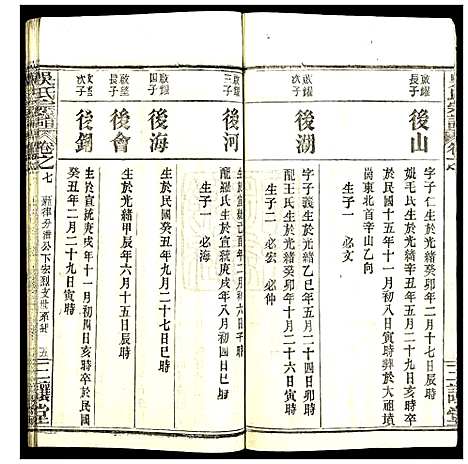 啟耀
長子
後山
字子仁生於光緒癸卯年二月十七日辰時
配毛氏生於光緒癸卯年五月二十九日亥時
民國十五年十一月初八日寅時葬於大禎墳
尚東北首辛山乙向
生子一 必文
啟耀
次子
後湖
字子義生於光緒乙巳年五月二十六日寅時
配王氏生於光緒年二月二十七日亥時
生子二 必宏 必仲
啟耀
三子
後河
生於宣統己酉年二月初六日子時
配羅氏生於宣統庚戌年八月初四日巳時
生子一 必海
啟耀
四子
後海
生於民國癸丑年九月二十七日巳時
啟望
長子
後會
生於光緒甲辰年六月十五日辰時
啟望
次子
後鈿
生於宣統庚戌年十一月初四日亥時卒於民國
癸丑年二月二十九日寅時
吳氏宗譜
卷之七
五
三讓堂